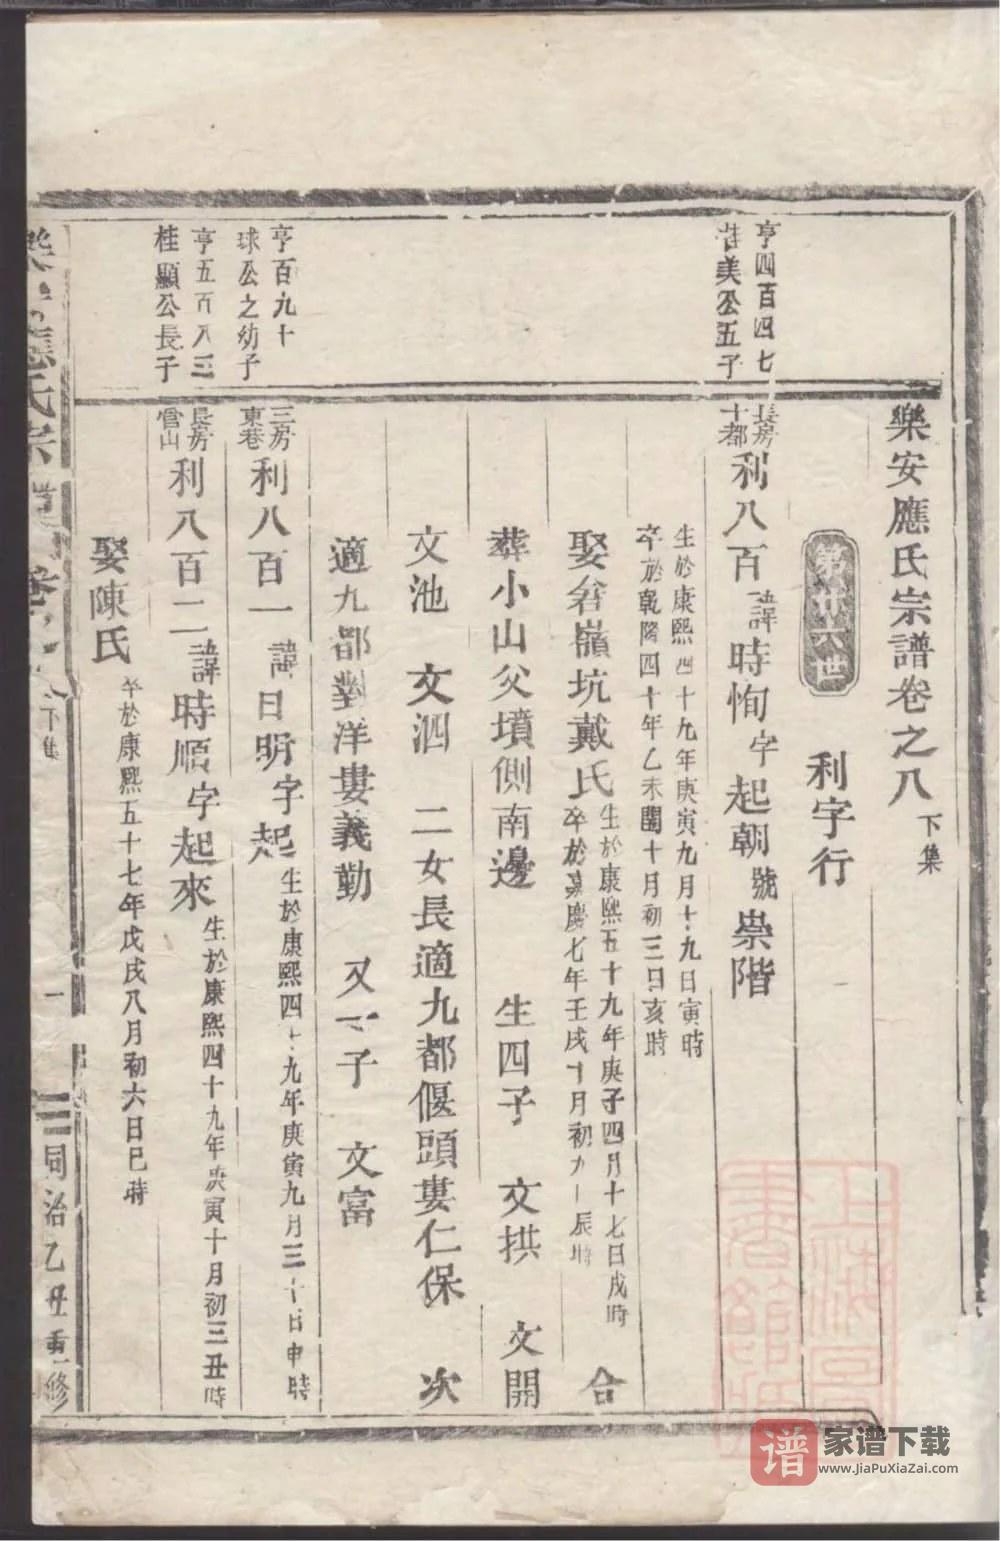 樂安應氏宗譜卷之八下集
第廿六世
利字行
亨四百四七
美公五子
長房
十都
利八百諱時恂字起朝號崇階
生於康熙四十九年庚寅九月十九日寅時
卒於乾隆四十年乙未閏十月初三日亥時
娶砦嶺坑戴氏
生於康熙五十九年庚子四月十七日戌時
卒於嘉慶七年壬戌十月初九日辰時
合
葬小山父墳側南邊 生四子 文拱 文開
文池 文泗 二女長適九都偃頭婁仁保 次
適九都對洋婁義勤 又一子 文富
亨百九十
球公之幼子
三房
東巷
利八百一諱日明字起
生於康熙四十九年庚寅九月三十日申時
亨五百八三
桂顯公長子
長房
管山
利八百二諱時順字起來
生於康熙四十九年庚寅十月初三丑時
娶陳氏
卒於康熙五十七年戊戌八月初六日巳時
應氏宗譜 卷之八下集 一 同治乙丑重修
谱 家谱下载
www.JiaPuXiaZai.com